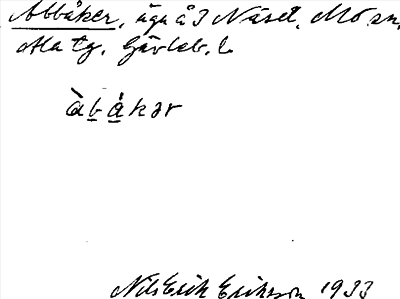 Abbåker, ägn å 3 Näset, Mo sn,
Ala tg. Gävleb. l.
àbå̀kər
Nils Erik Eriksson 1933